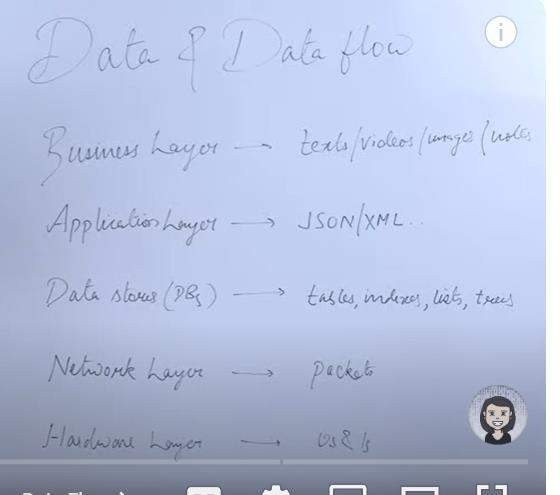 Data & Data flow
Business Layer → texts/videos/images/
Application Layer → JSON/XML..
Data stores (DBs) → tables, indexes, lists, trees
Network Layer → packets
Hardware Layer → 0s & 1s